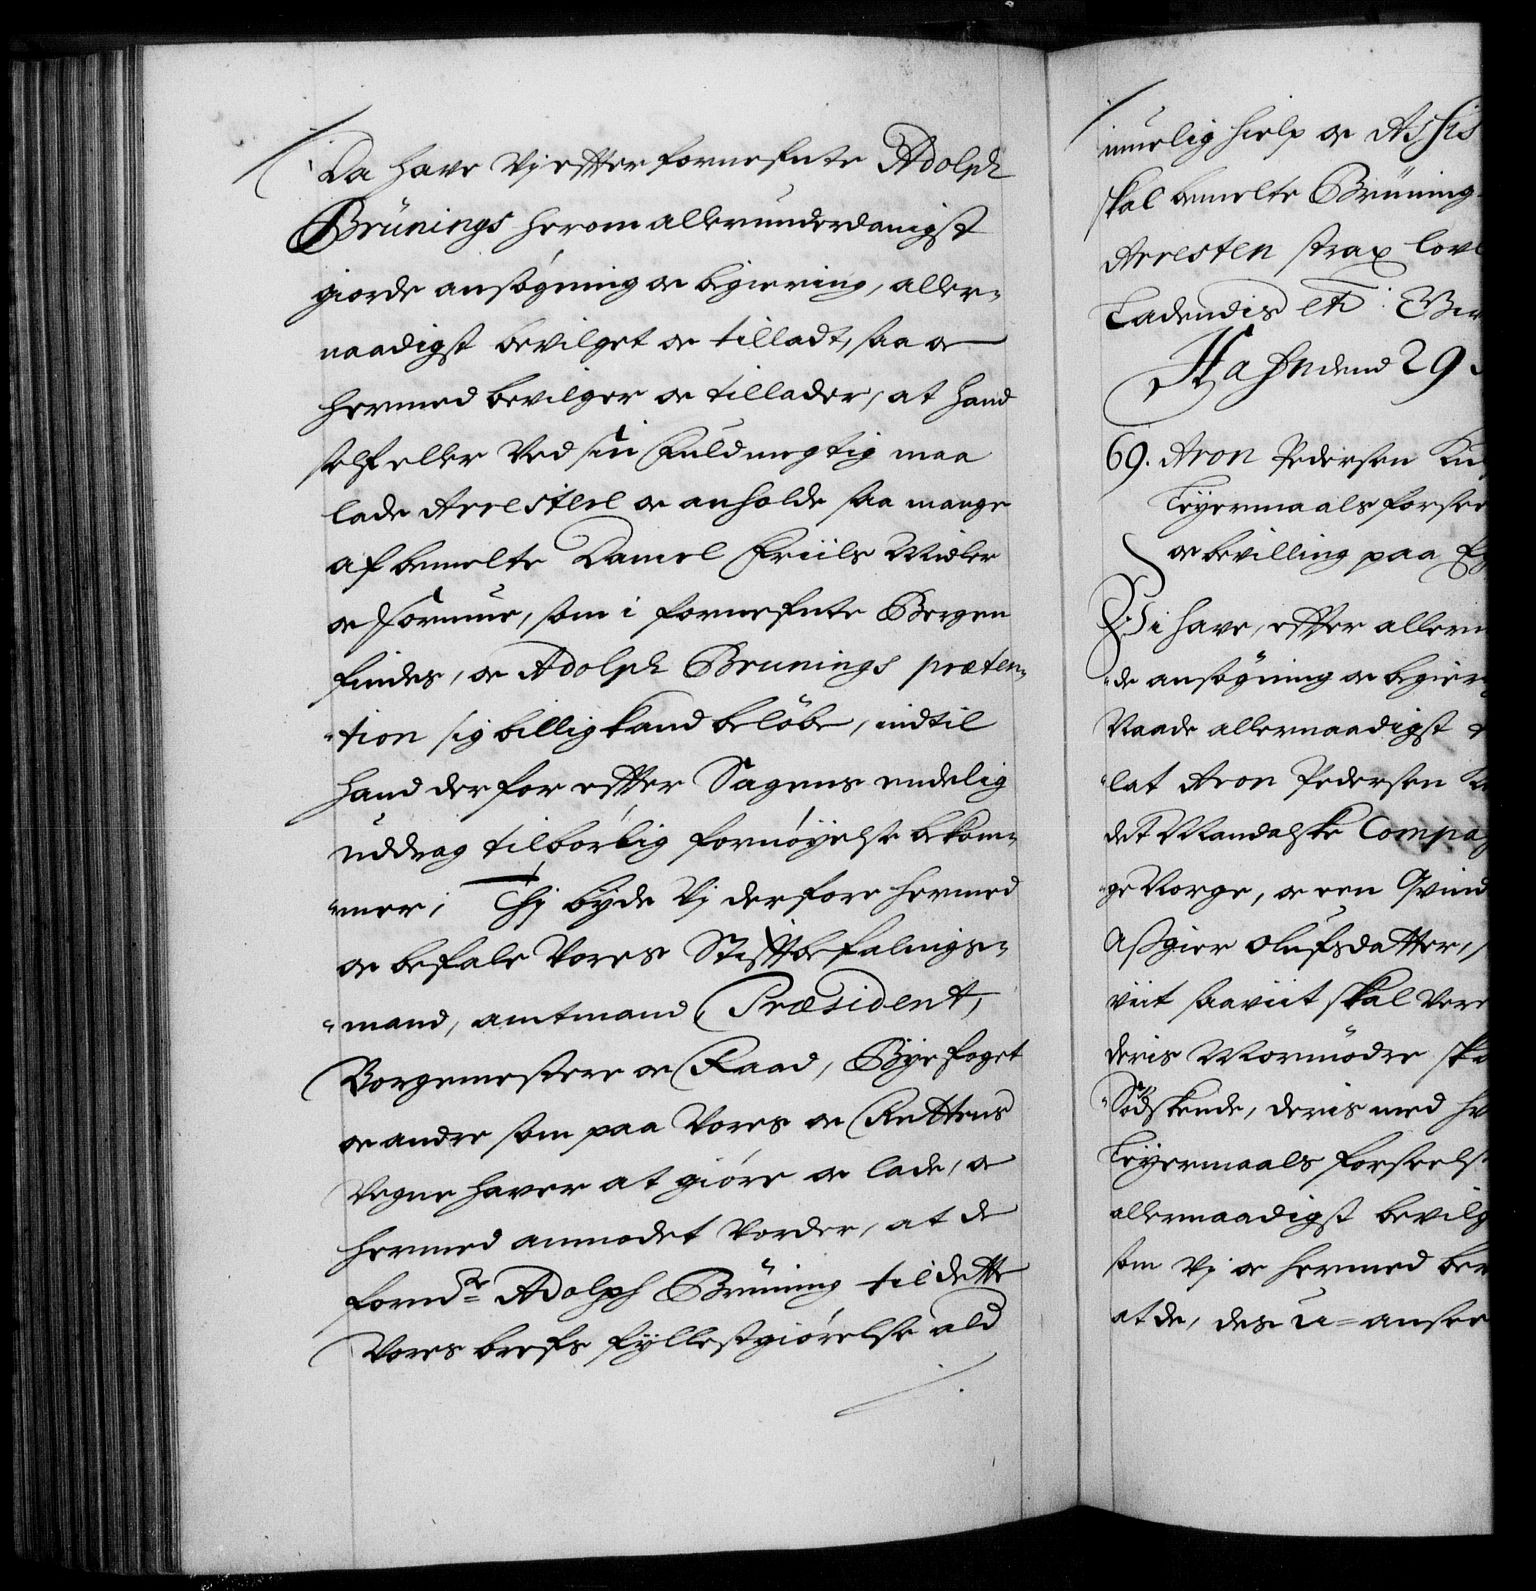 Da have Vj efter fornefnte Adolph
Brünings herom allerunderdanigst
giorde ansøgning oc begiering, aller-
naadigst bevilget oc tilladt, saa oc
hermed bevilger oc tillader, at hand
self eller Ved sin Fuldmegtig maa
lade Arrestere oc anholde saa mange
af bemelte Daniel Friils Midler
oc Formue, som i fornefnte Bergen
findes, oc Adolph Brunings præten-
-tion sig billig kand beløbe, indtil
hand derfor efter Sagens endelig
uddrag tilbørlig fornøyelse bekom-
-mer; Thj byde Vj derfore hermed
oc befale Vores Stiftbefalings-
-mand, amtmand, Præsident,
Borgemestere oc Raad, Byefoget
oc andre som paa Vores oc Rettens
Vegne haver at giøre oc lade, oc
hermed anmodet Vorder, at de
fornd:te Adolph Brüning til dette
Vores brefs fyllestgiørelse ald
muelig hielp oc Assis
skal bemelte Brüning
Arresten strax lov
Ladendis etc: Giv
Hafn den 29
69. Aron Pedersen
Leyermaals forsee
oc bevilling paa
Vi have, efter allerun
-de ansøgning oc begier
Naade allernaadigst
-lat Aron Pedersen
det Mandalske Compag
-ge Norge, oc een Qvind
Aßgier Olufsdatter,
viit saaviit skal Vere
deris Mormødre sk
-Sødskende, deris med
Leyermaals forseels
allernaadigst bevilg
som Vj oc hermed bev
at de, des u-ansee